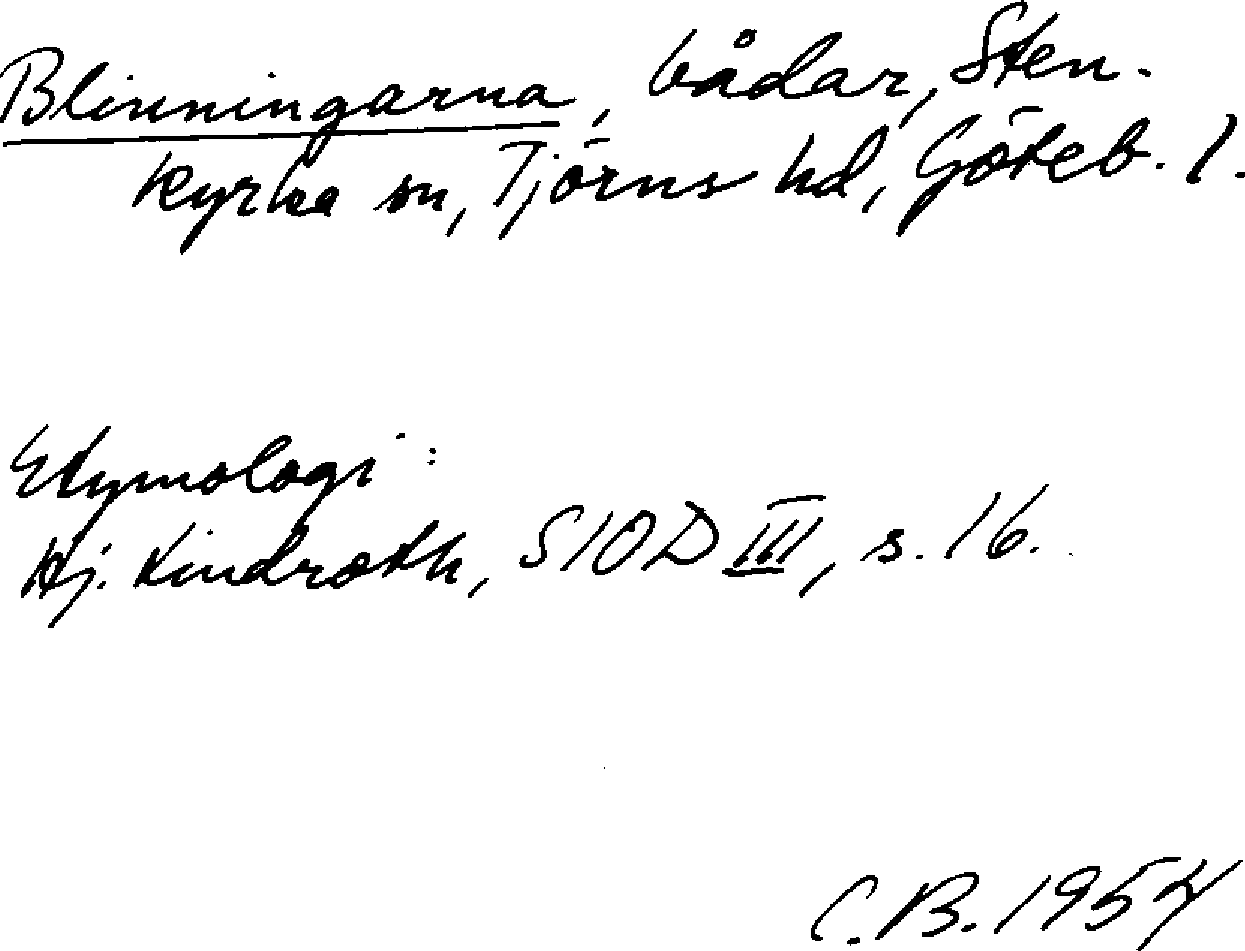 Blinningarna, bådar, Sten-
kyrka sn, Tjörns hd, Göteb. l.
Etymologi:
Hj. Lindroth, SIOD III, s. 16.
C.B. 1954